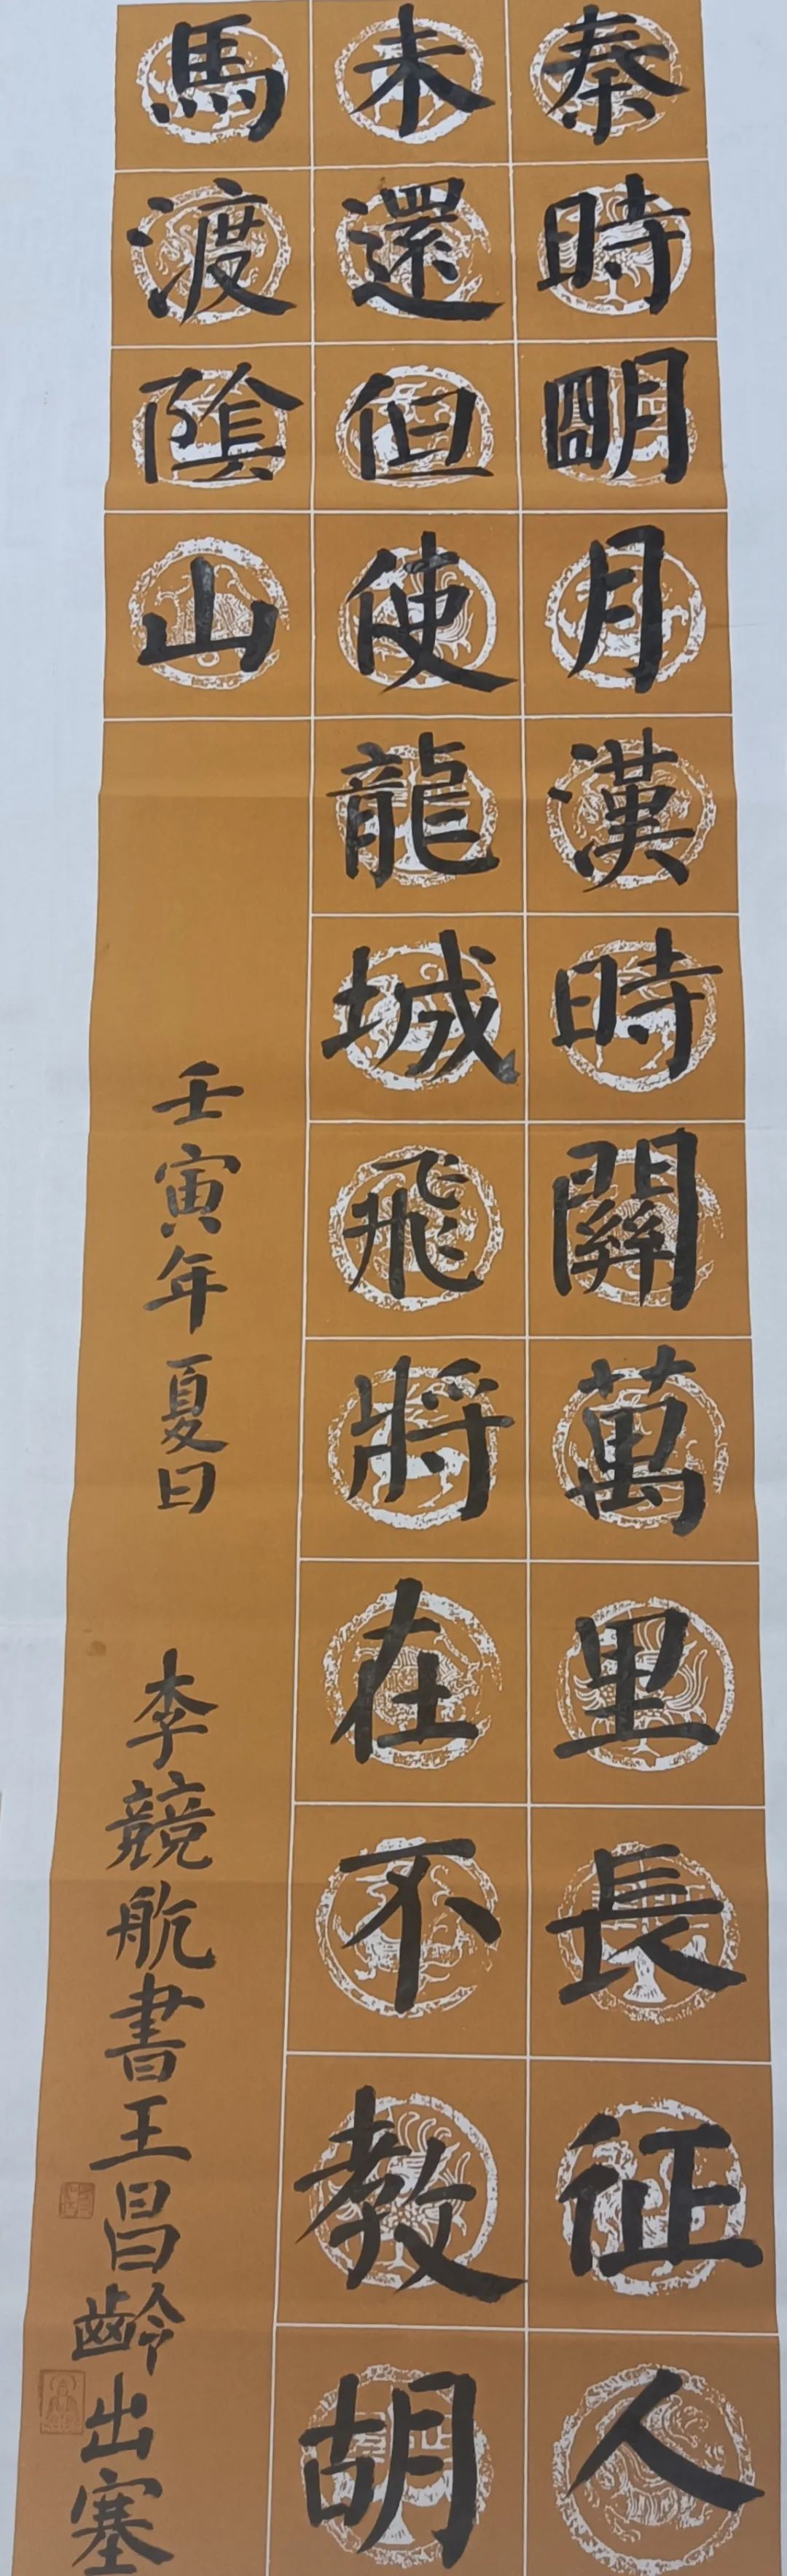 秦時明月漢時關萬里長征人
未還但使龍城飛將在不教胡
馬渡陰山
壬寅年夏日 李競航書王昌齡出塞